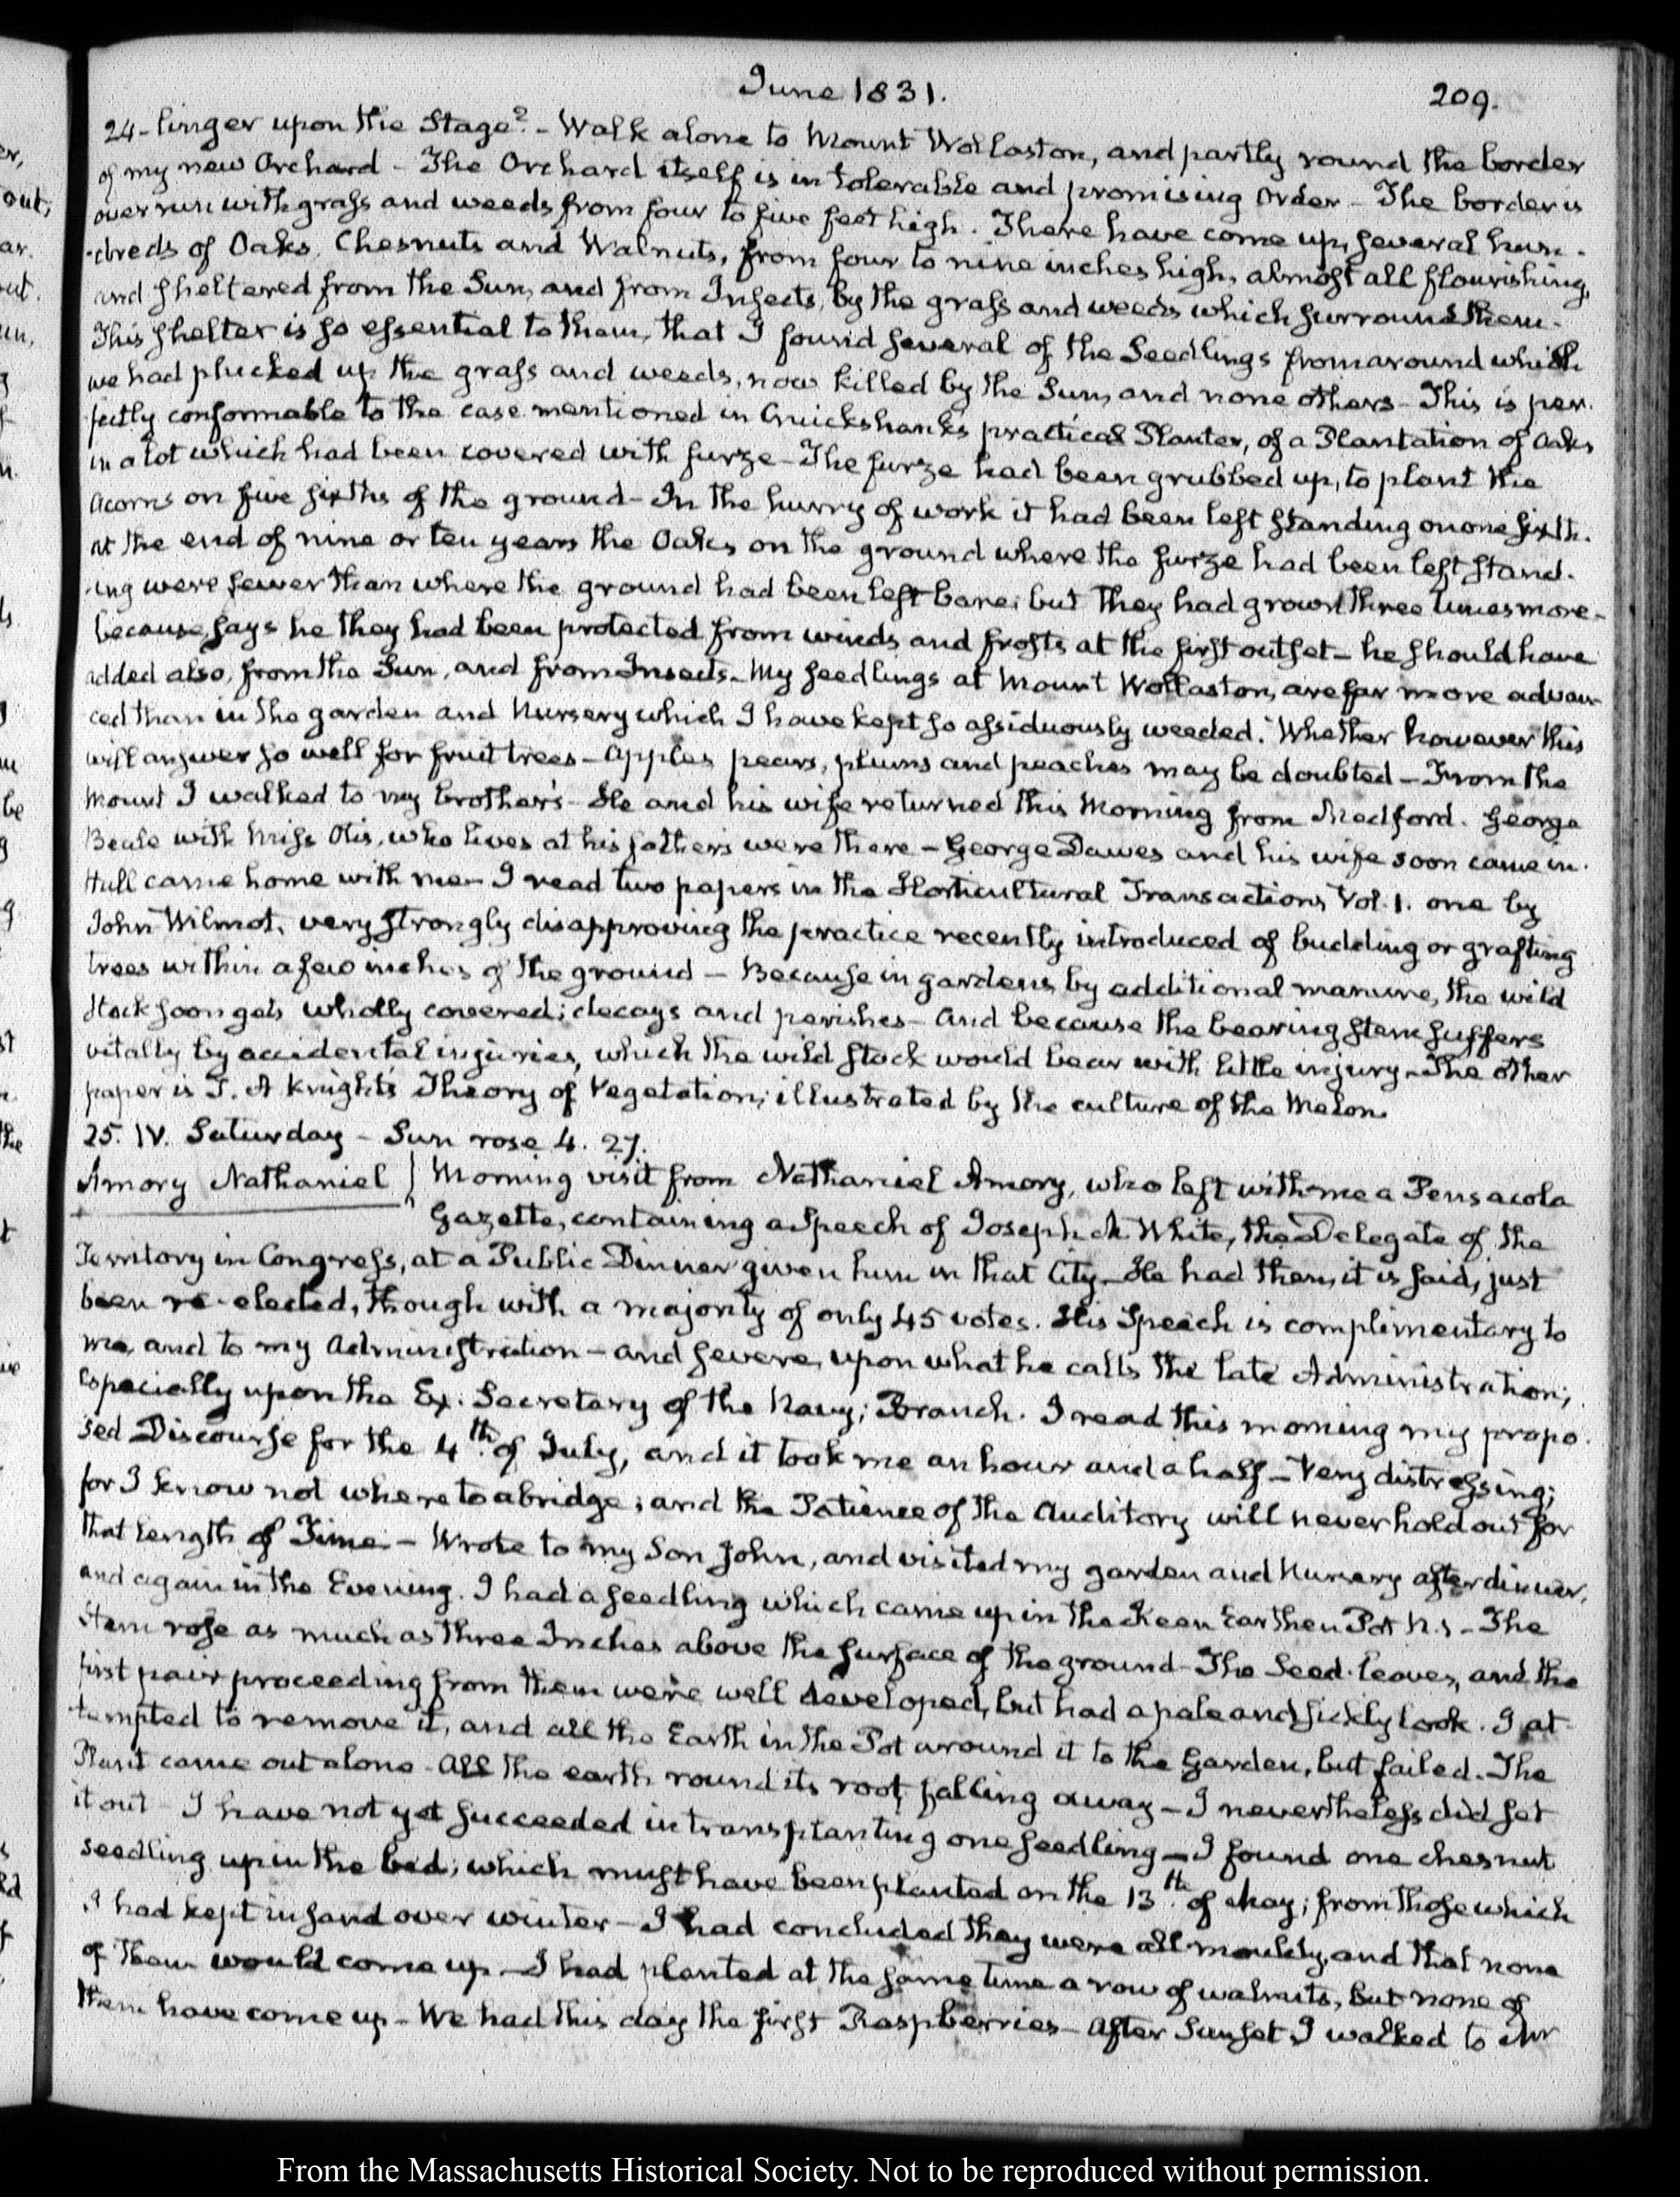 June 1831.
209.
24 - linger upon the Stage? - Walk alone to Mount Wollaston, and partly round the border
of my new Orchard - The Orchard itself is in tolerable and promising order - The border is
overrun with grass and weeds from four to five feet high. There have come up, several hun-
-dreds of Oaks, Chesnuts and Walnuts, from four to nine inches high, almost all flourishing,
and sheltered from the Sun, and from Insects, by the grass and weeds which surround them.
This shelter is so essential to them, that I found several of the Seedlings from around which
we had plucked up the grass and weeds, now killed by the Sun, and none others - This is per-
fectly conformable to the case mentioned in Cruickshank's practical Planter, of a Plantation of Oaks
in a lot which had been covered with furze - The furze had been grubbed up, to plant the
acorns on five sixths of the ground - In the hurry of work it had been left standing on one sixth.
at the end of nine or ten years the Oaks on the ground where the furze had been left stand-
-ing were fewer than where the ground had been left bare; but they had grown three times more -
because, says he they had been protected from winds and frosts at the first outset - he should have
added also, from the Sun, and from Insects - My seedlings at Mount Wollaston, are far more advan-
ced than in the garden and Nursery which I have kept so assiduously weeded. Whether however this
will answer so well for fruit trees - apples pears, plums and peaches may be doubted - From the
Mount I walked to my brother's - He and his wife returned this Morning from Medford. George
Beale with Miss Otis, who lives at his father's were there - George Dawes and his wife soon came in.
Hull came home with me - I read two papers in the Horticultural Transactions, Vol. 1. one by
John Wilmot, very strongly disapproving the practice recently introduced of budding or grafting
trees within a few inches of the ground - Because in gardens, by additional manure, the wild
stock soon gets wholly covered; decays and perishes - and because the bearing stem suffers
vitally by accidental injuries, which the wild stock would bear with little injury - The other
paper is T. A Knight's Theory of Vegetation; illustrated by the culture of the Melon.
25. IV. Saturday - Sun rose 4. 27.
Amory Nathaniel } Morning visit from Nathaniel Amory, who left with me a Pensacola
Gazette, containing a Speech of Joseph M White, the Delegate of the
Territory in Congress, at a Public Dinner given him in that City - He had then, it is said, just
been re-elected, though with a majority of only 45 votes. His Speech is complimentary to
me, and to my Administration - and severe, upon what he calls the late Administration;
especially upon the Ex. Secretary of the Navy; Branch. I read this morning my propo-
sed Discourse for the 4th. of July, and it took me an hour and a half - Very distressing;
for I know not where to abridge; and the Patience of the Auditory will never hold out for
that length of Time - Wrote to my Son John, and visited my garden and Nursery after dinner,
and again in the Evening. I had a seedling which came up in the Earthen Pot N. - The
Stem rose as much as three Inches above the surface of the ground - The Seed-leaves, and the
first pair proceeding from them were well developed, but had a pale and sickly look. I at-
-tempted to remove it, and all the Earth in the Pot around it to the Garden, but failed. The
Plant came out alone - All the earth round its root, falling away - I nevertheless did set
it out - I have not yet succeeded in transplanting one seedling - I found one chesnut
seedling up in the bed; which must have been planted on the 13th. of May; from those which
I had kept in sand over winter - I had concluded they were all mouldy, and that none
of them would come up - I had planted at the same time a row of walnuts, but none of
them have come up - We had this day the first Raspberries - After Sunset I walked to Mr
From the Massachusetts Historical Society. Not to be reproduced without permission.